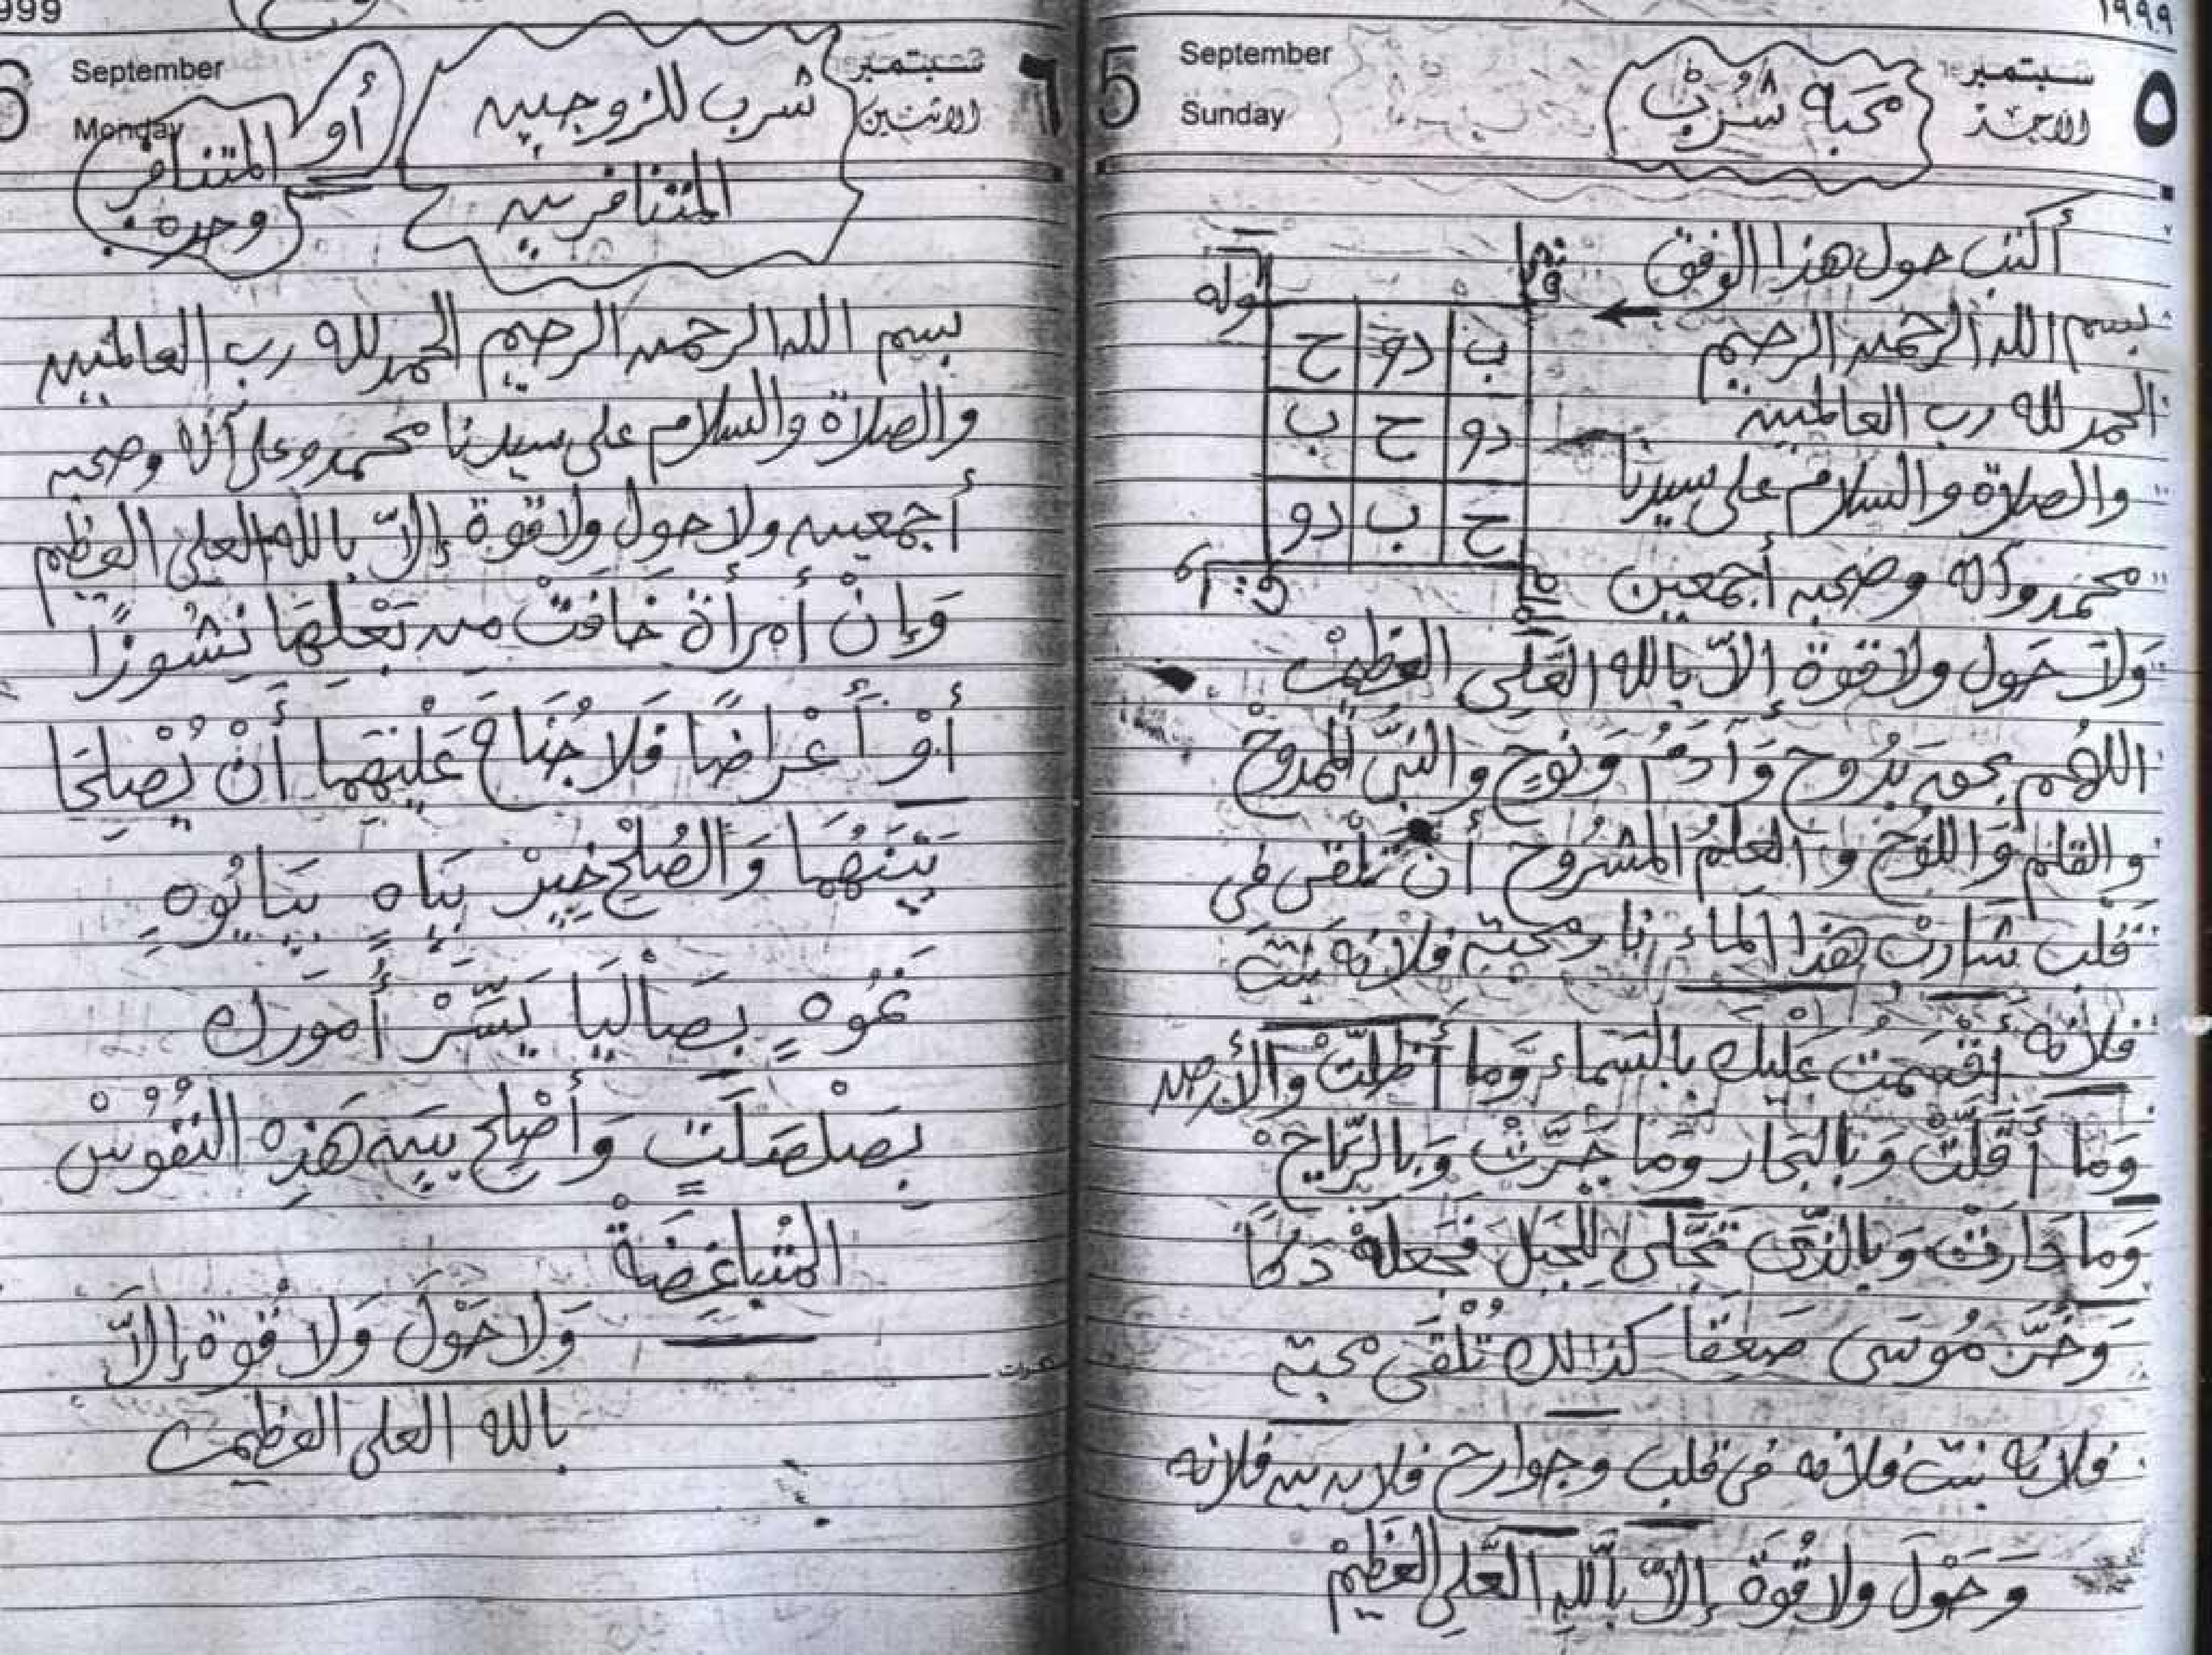 ١٩٩٩
٥
سبتمبر
الأحد
محبة شرب
September
Sunday
5
أكتب حول هذا الوفق
بسم الله الرحمن الرحيم
الحمد لله رب العالمين
والصلاة والسلام على سيدنا
محمد وآله وصحبه أجمعين
قوله
ب دو ح
دو ح ب
ح ب دو
وَلاَ حَول ولا قوة إلاّ بالله العَلِى العظيمْ
اللهُم بحق بَدُوح وَآدَمُ وَنُوحٍ والنبىّ الممدوحْ
والقلم وَاللوْحْ و العِلمُ المشرُوحْ أن تلْقى فى
قَلب شارِبْ هذا الماء نار محبة فلانة بنت
فلانه أقسَمتُ عَليْكَ بالسماء وَما أظلّتْ والأرض
وَمَا أَقَلّتْ وَبالبحار وَمَا جَرَتْ وَبالرّيَاحْ
وَما ذارت وَبالذى تجَلى للجَبل فجَعلهُ دكاً
وَخَرّ مُوسَى صَعِقاً كذالك تُلْقَى محبة
فلانه بنت فلانه فى قلب وجوارح فلان بن فلانه
وَحَوْلَ ولا قُوَةَ إلاّ بِاللهِ العَلىِ العَظِيمْ
999
6
September
Monday
٦
سبتمبر
الاثنين
شرب للزوجين
المتنافرين
أو
المتنافر
وحده
بسم الله الرحمن الرحيم الحمد لله رب العالمين
والصلاة والسلام على سيدنا محمد وعلى آله وصحبه
أجمعين ولا حول ولا قوة إلاّ بالله العلى العظيم
وَإِنْ أمرأة خَافَتْ مِن بَعْلِهَا نُشوزًا
أَوْ أَعْرَاضًا فَلا جُنَاحَ عَليْهِمَا أَنْ يُصْلِحَا
بَيْنَهُمَا وَالصُلْح خَيِرْ بَيَاهٍ بَيَايُوهٍ
نَمُوهٍ بِصَالْيَا يَسّرْ أُمورَك
بِصَلْصَلَتٍ وَأَصْلِح بَيِن هَذِه النفُوُسْ
المُتَباغِضَةْ
وَلا حَوْلَ وَلا قُوة إلاّ
بالله العلى العظيم